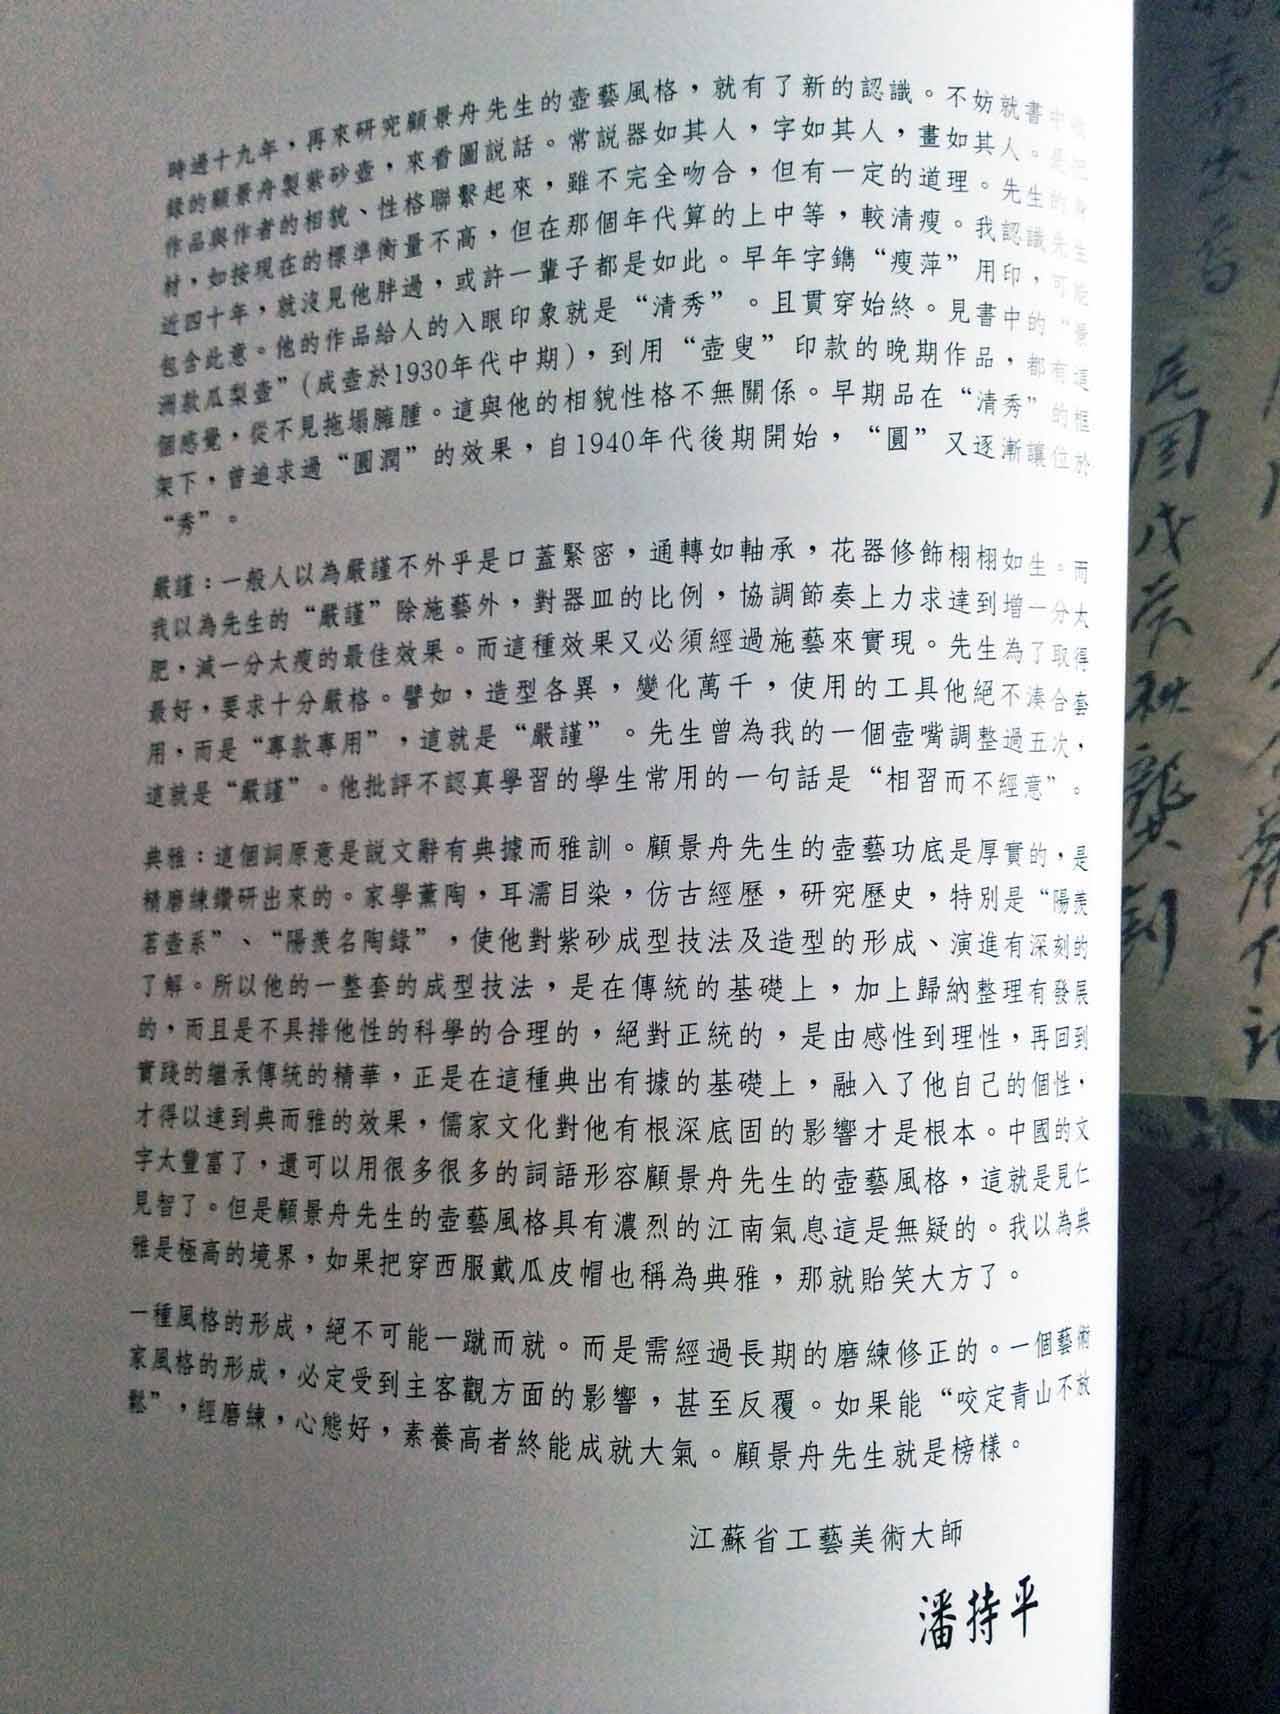 時過十九年，再來研究顧景舟先生的壺藝風格，就有了新的認識。不妨就書中收
錄的顧景舟製紫砂壺，來看圖説話。常説器如其人，字如其人，畫如其人。是把
作品與作者的相貌、性格聯繫起來，雖不完全吻合，但有一定的道理。先生的身
材，如按現在的標準衡量不高，但在那個年代算的上中等，較清瘦。我認識先生
近四十年，就沒見他胖過，或許一輩子都是如此。早年字鐫“瘦萍”用印，可能
包含此意。他的作品給人的入眼印象就是“清秀”。且貫穿始終。見書中的“景
洲款瓜梨壺”（成壺於1930年代中期），到用“壺叟”印款的晚期作品，都有這
個感覺，從不見拖塌臃腫。這與他的相貌性格不無關係。早期品在“清秀”的框
架下，曾追求過“圓潤”的效果，自1940年代後期開始，“圓”又逐漸讓位於
“秀”。
嚴謹：一般人以為嚴謹不外乎是口蓋緊密，通轉如軸承，花器修飾栩栩如生。而
我以為先生的“嚴謹”除施藝外，對器皿的比例，協調節奏上力求達到增一分太
肥，減一分太瘦的最佳效果。而這種效果又必須經過施藝來實現。先生為了取得
最好，要求十分嚴格。譬如，造型各異，變化萬千，使用的工具他絕不湊合套
用，而是“專款專用”，這就是“嚴謹”。先生曾為我的一個壺嘴調整過五次，
這就是“嚴謹”。他批評不認真學習的學生常用的一句話是“相習而不經意”。
典雅：這個詞原意是説文辭有典據而雅訓。顧景舟先生的壺藝功底是厚實的，是
精磨練鑽研出來的。家學薰陶，耳濡目染，仿古經歷，研究歷史，特別是“陽羨
茗壺系”、“陽羨名陶錄”，使他對紫砂成型技法及造型的形成、演進有深刻的
了解。所以他的一整套的成型技法，是在傳統的基礎上，加上歸納整理有發展
的，而且是不具排他性的科學的合理的，絕對正統的，是由感性到理性，再回到
實踐的繼承傳統的精華，正是在這種典出有據的基礎上，融入了他自己的個性，
才得以達到典而雅的效果，儒家文化對他有根深底固的影響才是根本。中國的文
字太豐富了，還可以用很多很多的詞語形容顧景舟先生的壺藝風格，這就是見仁
見智了。但是顧景舟先生的壺藝風格具有濃烈的江南氣息這是無疑的。我以為典
雅是極高的境界，如果把穿西服戴瓜皮帽也稱為典雅，那就貽笑大方了。
一種風格的形成，絕不可能一蹴而就。而是需經過長期的磨練修正的。一個藝術
家風格的形成，必定受到主客觀方面的影響，甚至反覆。如果能“咬定青山不放
鬆”，經磨練，心態好，素養高者終能成就大氣。顧景舟先生就是榜樣。
江蘇省工藝美術大師
潘持平
民國戊子秋龔剑